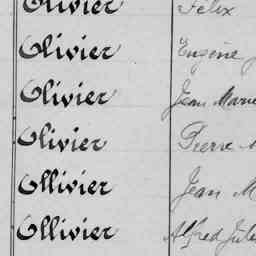 Olivier Félix
Olivier Eugène
Olivier Jean Marie
Olivier Pierre
Ollivier Jean M
Ollivier Alfred Jules